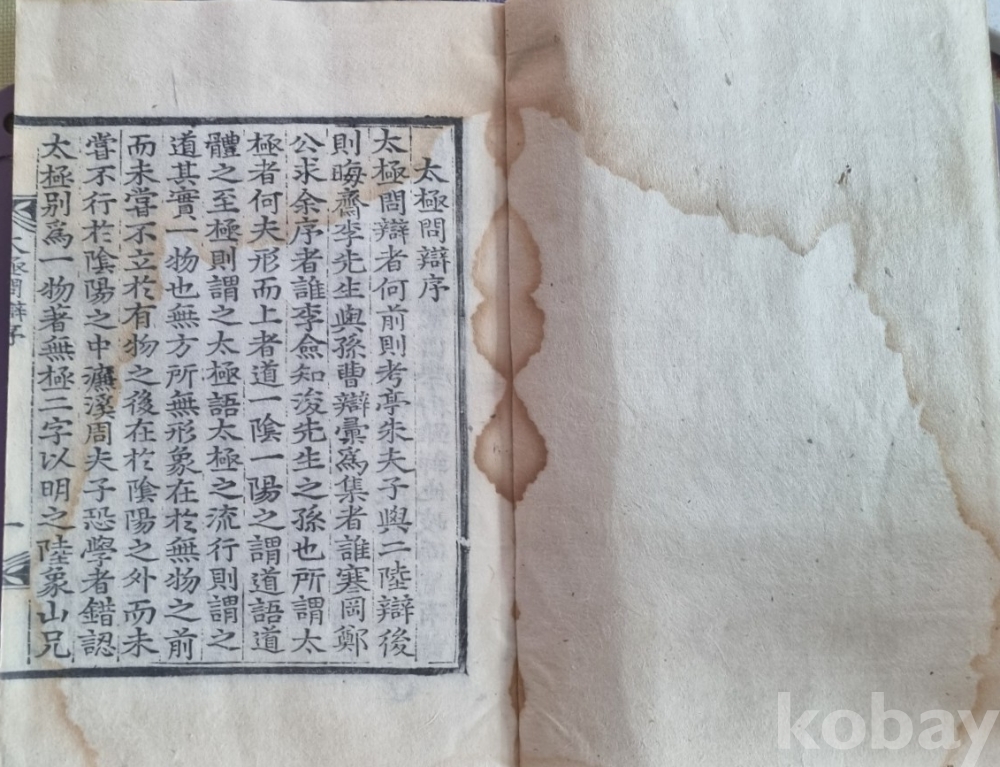 太極問辯序
太極問辯者何前則考亭朱夫子與二陸辯後
則晦齋李先生與孫曹辯彙爲集者誰寒岡鄭
公求余序者誰李僉知浚先生之孫也所謂太
極者何夫形而上者道一陰一陽之謂道語道
體之至極則謂之太極語太極之流行則謂之
道其實一物也無方所無形象在於無物之前
而未嘗不立於有物之後在於陰陽之外而未
嘗不行於陰陽之中濂溪周夫子恐學者錯認
太極別爲一物著無極二字以明之陸象山兄
太極問辯序
一
kobay